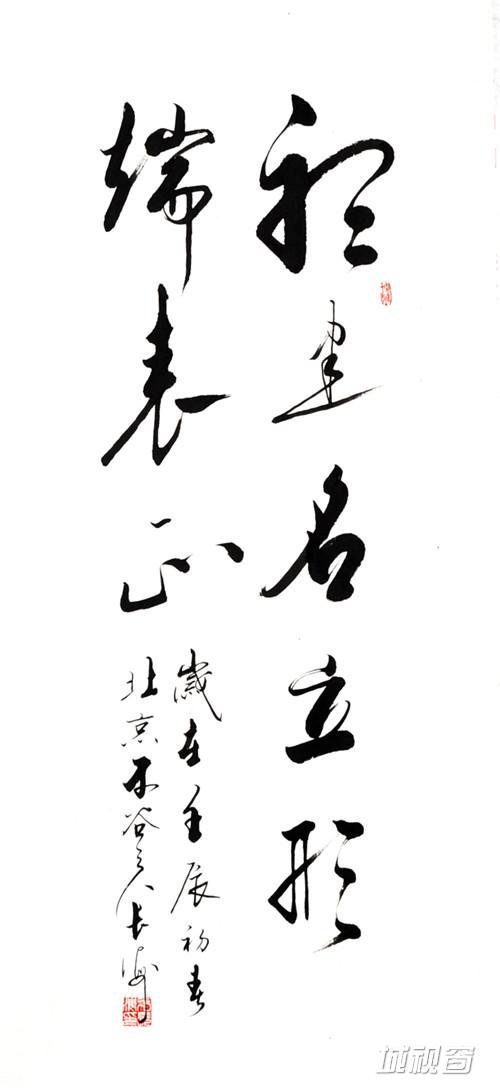 德建名立形
端表正
歲在壬辰初春
北京平谷之人长海
城视窗